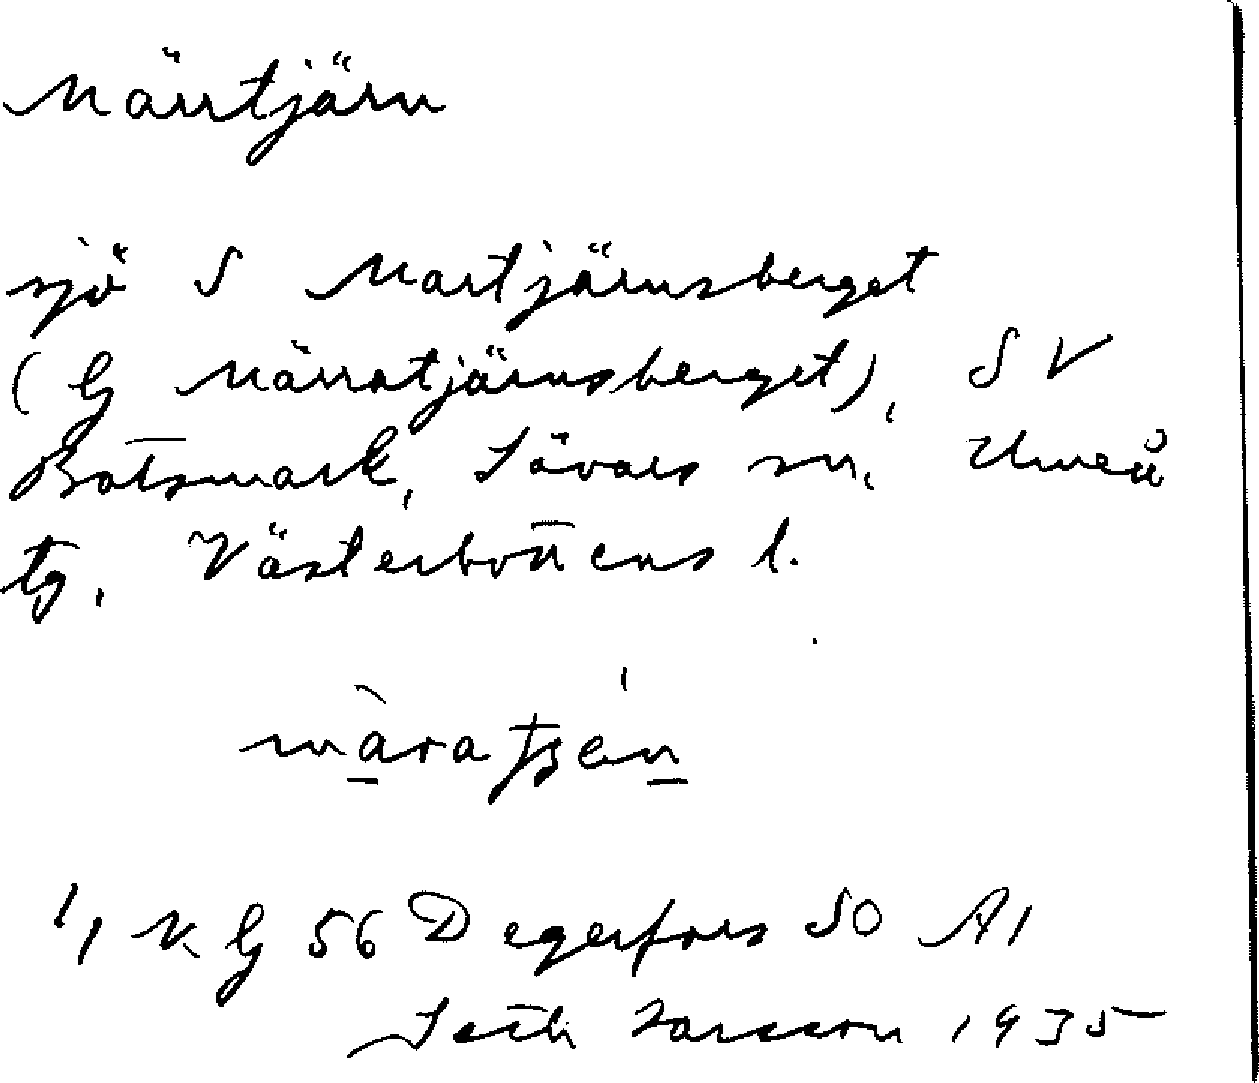 Märrtjärn
sjö S Martjärnsberget
(G Märratjärnsberget), SV
Botsmark, Sävars sn, Umeå
tg, Västerbottens l.
màratʃén
K. G 56 Degerfors SO A1
Seth Larsson 1935